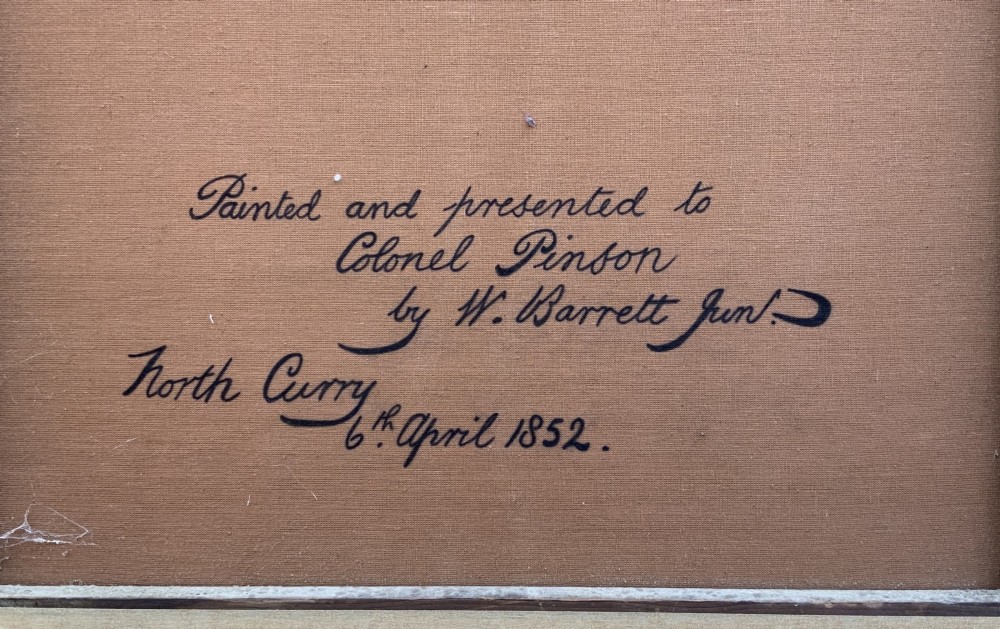 Painted and presented to
Colonel Pinson
by W. Barrett Junr.
North Curry
6th. April 1852.